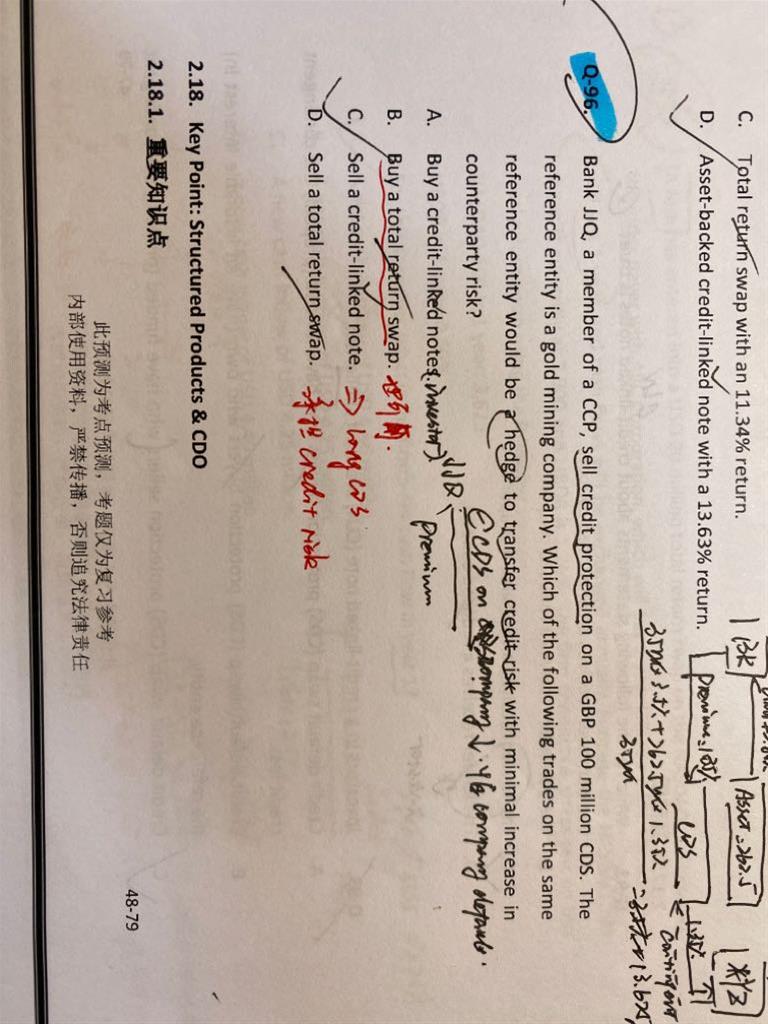 C. Total return swap with an 11.34% return.
D. Asset-backed credit-linked note with a 13.63% return.
Premium=1.35%
Asset=262.5
CDS
1.35%
XYZ
Q-96.
Bank JJQ, a member of a CCP, sell credit protection on a GBP 100 million CDS. The
reference entity is a gold mining company. Which of the following trades on the same
reference entity would be a hedge to transfer credit risk with minimal increase in
counterparty risk?
A. Buy a credit-linked note. (investor)
JJQ
Premium
CDS on
company
company defaults.
B. Buy a total return swap.
C. Sell a credit-linked note. ⇒ long CDS
D. Sell a total return swap. 承担 credit risk
2.18. Key Point: Structured Products & CDO
2.18.1. 重要知识点
此预测为考点预测，考题仅为复习参考
内部使用资料，严禁传播，否则追究法律责任
48-79